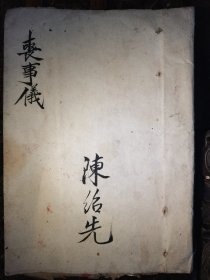 喪事儀
陳紹先